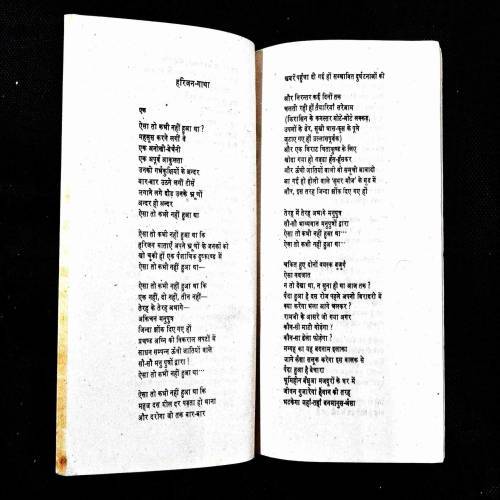 हरिजन-गाथा
एक
ऐसा तो कभी नहीं हुआ था ?
महसूस करने लगीं वे
एक अनोखी बेचैनी
एक अपूर्व आकुलता
उनकी गर्भकुक्षियों के अन्दर
बार-बार उठने लगी टीसें
लगाने लगे दौड़ उनके भ्रूण
अन्दर ही अन्दर
ऐसा तो कभी नहीं हुआ था
ऐसा तो कभी नहीं हुआ था कि
हरिजन माताएँ अपने भ्रूणों के जनकों को
खो चुकी हों एक पैशाचिक दुष्काण्ड में
ऐसा तो कभी नहीं हुआ था...
ऐसा तो कभी नहीं हुआ था कि
एक नहीं, दो नहीं, तीन नहीं—
तेरह के तेरह अभागे—
अकिंचन मनुपुत्र
जिन्दा झोंक दिए गए हों
प्रचण्ड अग्नि की विकराल लपटों में
साधन सम्पन्न ऊँची जातियों वाले
सौ-सौ मनुपुत्रों द्वारा !
ऐसा तो कभी नहीं हुआ था...
ऐसा तो कभी नहीं हुआ था कि
महज दस मील दूर पड़ता हो थाना
और दरोगा जी तक बार-बार
खबरें पहुँचा दी गई हों सम्भावित दुर्घटनाओं की
और निरन्तर कई दिनों तक
चलती रही हों तैयारियाँ सरेआम
(किरासिन के कनस्तर मोटे-मोटे लक्कड़,
उपलों के ढेर, सूखी घास-फूस के पूले
जुटाए गए हों उल्लासपूर्वक)
और एक विराट चिताकुण्ड के लिए
खोदा गया हो गड्ढा हँस-हँसकर
और ऊँची जातियों वाली वो समूची आबादी
आ गई हो होली वाले 'सुपर मौज' के मूड में
और, इस तरह जिन्दा झोंक दिए गए हों
तेरह के तेरह अभागे मनुपुत्र
सौ-सौ भाग्यवान मनुपुत्रों द्वारा
ऐसा तो कभी नहीं हुआ था...
ऐसा तो कभी नहीं हुआ था...
चकित हुए दोनों वयस्क बुजुर्ग
ऐसा नवजातक
न तो देखा था, न सुना ही था आज तक ?
पैदा हुआ है दस रोज पहले अपनी बिरादरी में
क्या करेगा भला आगे चलकर ?
रामजी के आसरे जी गया अगर
कौन-सी माटी गोड़ेगा ?
कौन-सा ढेला फोड़ेगा ?
मग्गह का यह बदनाम इलाका
जाने कैसा सलूक करेगा इस बालक से
पैदा हुआ है बेचारा
भूमिहीन बँधुआ मजदूरों के घर में
जीवन गुजारेगा हैवान की तरह
भटकेगा जहाँ-तहाँ बनमानुस-जैसा